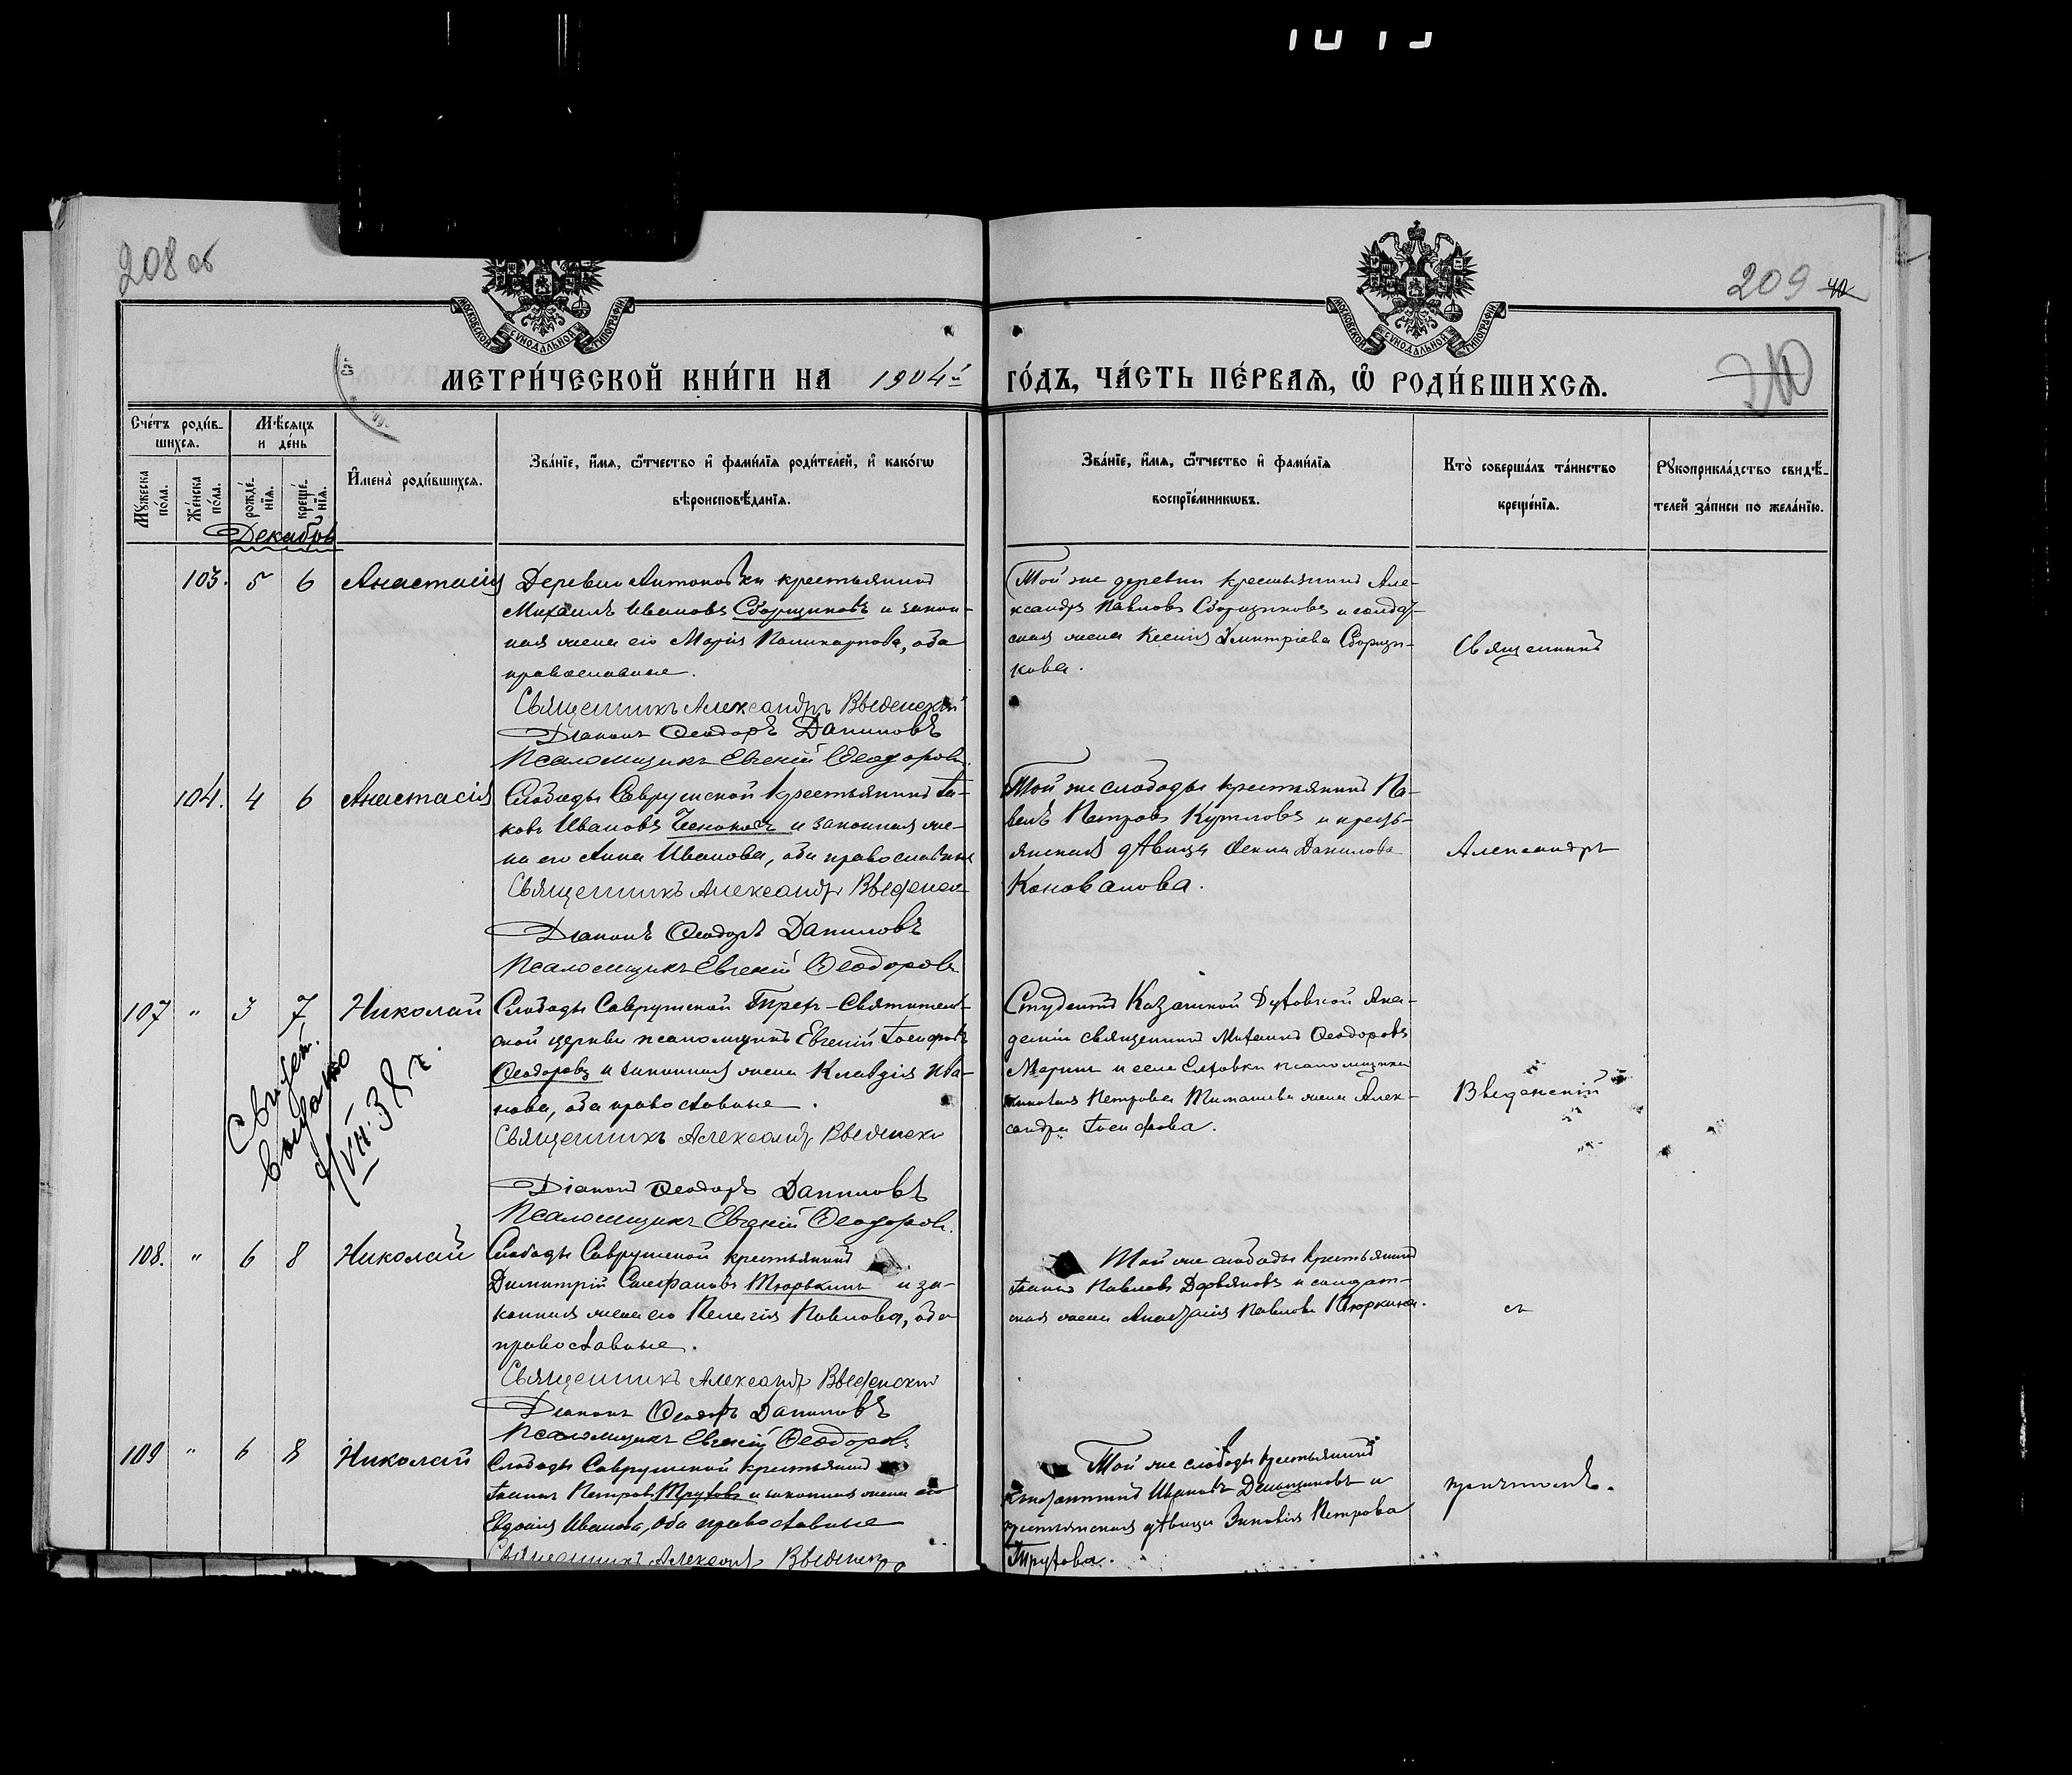 208 об
209 40
МОСКОВСКОЙ СѴНОДАЛЬНОЙ ТИПОГРАФІИ
МОСКОВСКОЙ СѴНОДАЛЬНОЙ ТИПОГРАФІИ
МЕТРИ́ЧЕСКОЙ КНИ́ГИ НА 1904й
ГО́ДЪ, ЧА́СТЬ ПЕ́РВАЯ, Ѽ РОДИ́ВШИХСЯ.
Сче́тъ роди́в-
шихся.
Мѣ́сяцъ
и де́нь
Мꙋжеска по́ла.
Же́нска по́ла.
рожде́нїя.
креще́нїя.
И҆мена̀ роди́вшихся.
Зва́нїе, и҆́мя, ѻ҆́тчество и҆ фами́лїя роди́телей, и҆ како́гѡ
вѣроисповѣ́данїя.
Зва́нїе, и҆́мя, ѻ҆́тчество и҆ фами́лїя
воспрїе́мникѡвъ.
Кто̀ соверша́лъ та́инство
креще́нїя.
Рꙋкоприкла́дство свидѣ́-
телей за́писи по жела́нїю.
Декабрь
103. 5 6 Анастасія
Деревни Антоновки крестьянинъ
Михаилъ Ивановъ Сборщиковъ и закон-
ная жена его Марія Поликарпова, оба
православные.
Священникъ Александръ Введенскій
Діаконъ Ѳеодоръ Даниловъ
Псаломщикъ Евгеній Ѳеодоровъ.
Той же деревни крестьянинъ Але-
ксандръ Павловъ Сборщиковъ и солдат-
ская жена Ксенія Димитріева Сборщи-
кова.
Священникъ
104. 4 6 Анастасія
Слободы Саврушской крестьянинъ Іа-
ковъ Ивановъ и законная же-
на его Анна Иванова, оба православные
Священникъ Александръ Введенск
Діаконъ Ѳеодоръ Даниловъ
Псаломщикъ Евгеній Ѳеодоровъ
Той же слободы крестьянинъ Па-
велъ Петровъ и кресть-
янская дѣвица Данилова
Коновалова.
Александръ
107 " 3 7 Николай
Слободы Саврушской Трех-Святитель-
ской церкви псаломщикъ Евгеній Іосифовъ
Ѳеодоровъ и законная жена Клавдія Ива-
нова, оба православные.
Священникъ Александръ Введенскі
Діаконъ Ѳеодоръ Даниловъ
Псаломщикъ Евгеній Ѳеодоровъ.
Студентъ Казанской Духовной Ака-
деміи священникъ Михаилъ Ѳеодоровъ
и села Елховки псаломщика
Петрова жена Алек-
сандра Іосифова.
Введенскій
Свидет.
выдано
VIII 38 г.
108. " 6 8 Николай
Слободы Саврушской крестьянинъ
Димитрій Стефановъ Тюрькинъ и за-
конная жена его Пелагія Павлова, оба
православные.
Священникъ Александръ Введенскій
Діаконъ Ѳеодоръ Даниловъ
Псаломщикъ Евгеній Ѳеодоровъ
Той же слободы крестьянинъ
Іоаннъ Павловъ и солдат-
ская жена Анастасія Павлова Тюркина.
съ
109 " 6 8 Николай
Слободы Саврушской крестьянинъ
Іоаннъ Петровъ Труховъ и законная жена его
Евдокія Иванова, оба православные
Священникъ Александръ Введенск
Той же слободы крестьянинъ
Константинъ Ивановъ Деньщиковъ и
крестьянская дѣвица Зиновія Петрова
Трухова.
причтомъ.